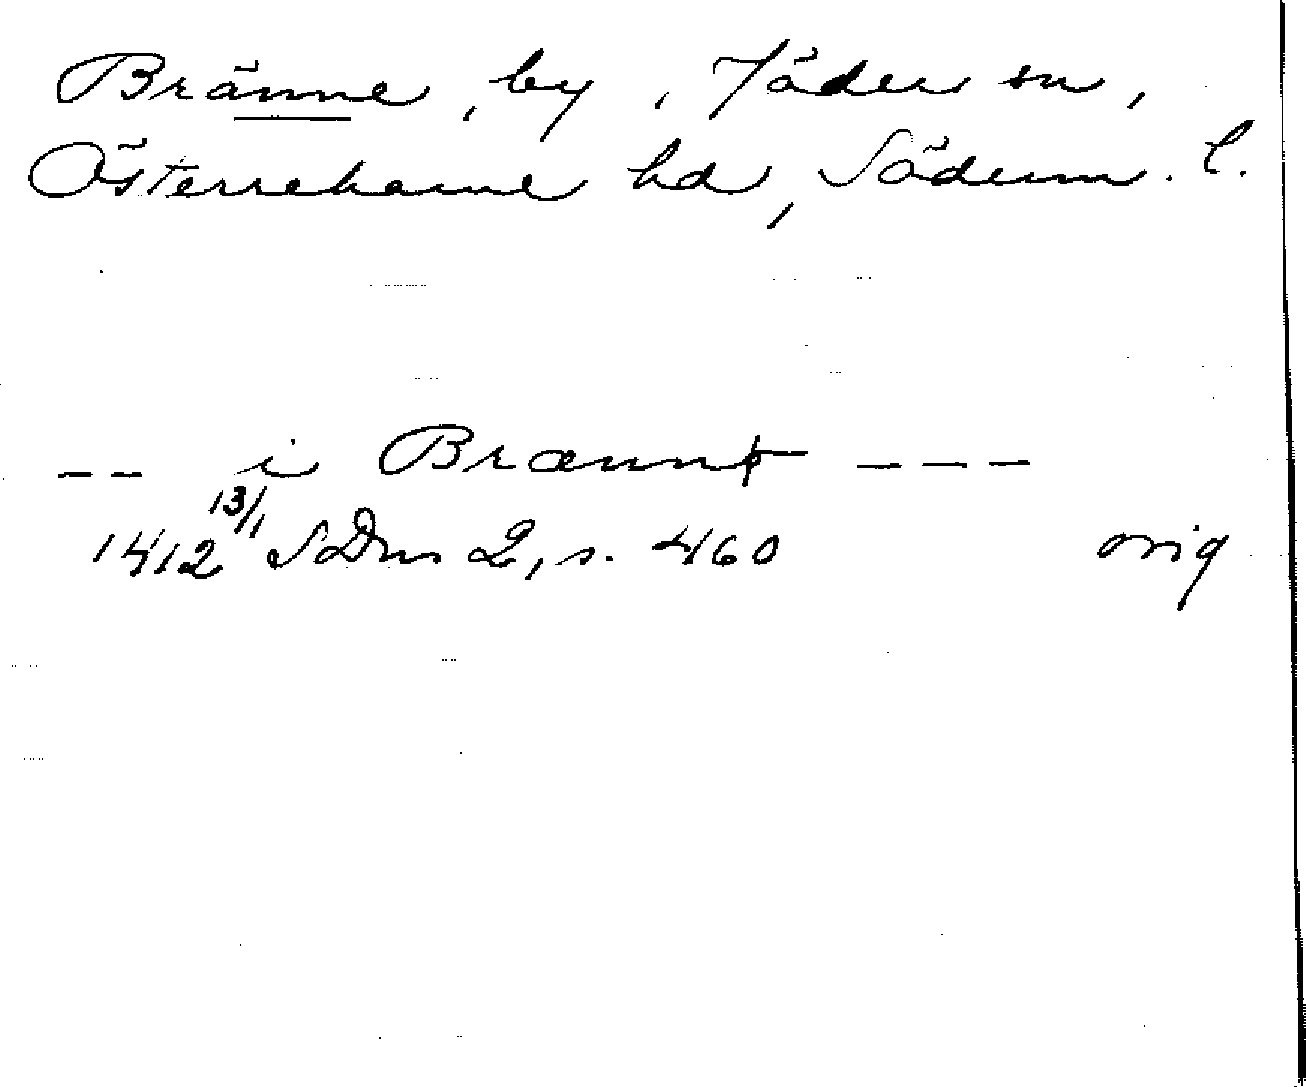 Bränne, by, Jäder sn,
Österrekarne hd, Söderm. l.
-- i Brænnø ---
1412 13/1 SDns 2, s. 460 orig